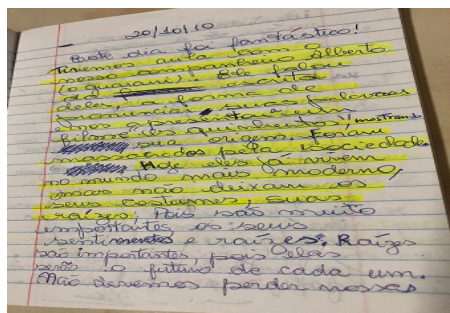 20/10/10
Este dia foi fantástico!
Tivemos aula com o
nosso companheiro Alberto
(o guarani). Ele falou
deles, a forma de
suas palavras
mostrando
sua origem. Foram
massacrados pela sociedade
Hoje eles já vivem
no mundo mais moderno,
mas não deixam os
seus costumes, suas
raízes, Pois são muito
importantes os seus
sentimentos e raízes. Raízes
são importantes, pois elas
serão o futuro de cada um.
Não devemos perder nossas